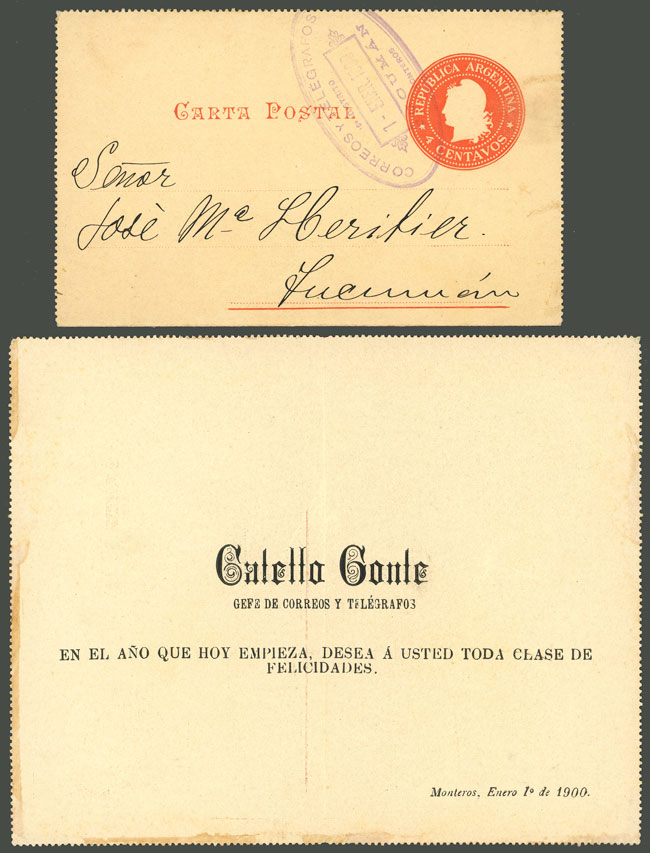 CARTA POSTAL
REPÚBLICA ARGENTINA
4 CENTAVOS
CORREOS Y TELEGRAFOS
MONTEROS
TUCUMÁN
1 - ENE 1900
Señor
José Mª Heritier.
Tucumán
Catello Conte
GEFE DE CORREOS Y TELÉGRAFOS
EN EL AÑO QUE HOY EMPIEZA, DESEA Á USTED TODA CLASE DE
FELICIDADES.
Monteros, Enero 1º de 1900.